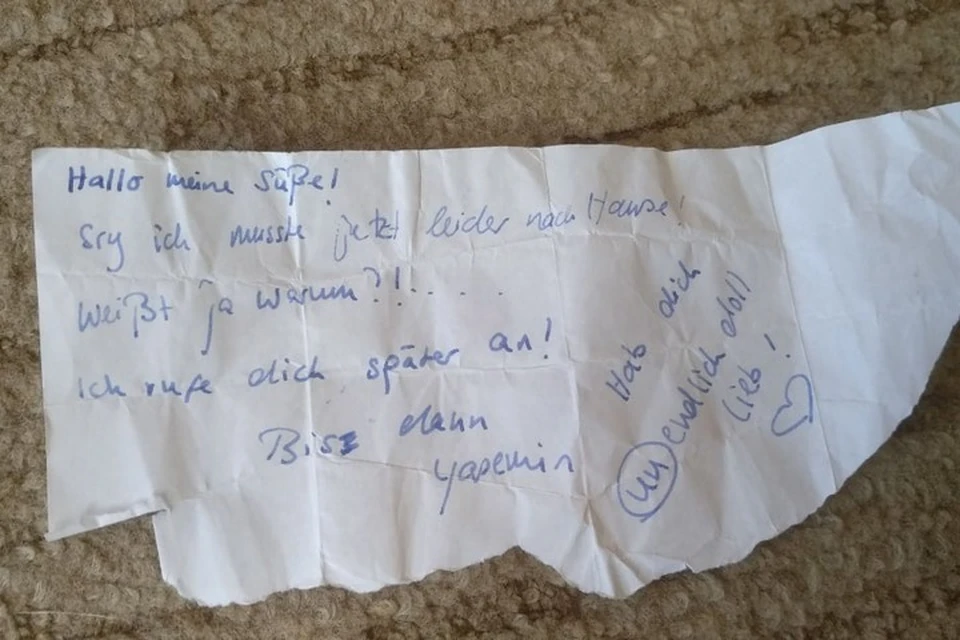 Hallo meine Süße!
Sry ich musste jetzt leider nach Hause!
Weißt ja warum?!.....
Ich rufe dich später an!
Bis dann
Yasemin
Hab dich
unendlich doll
lieb!